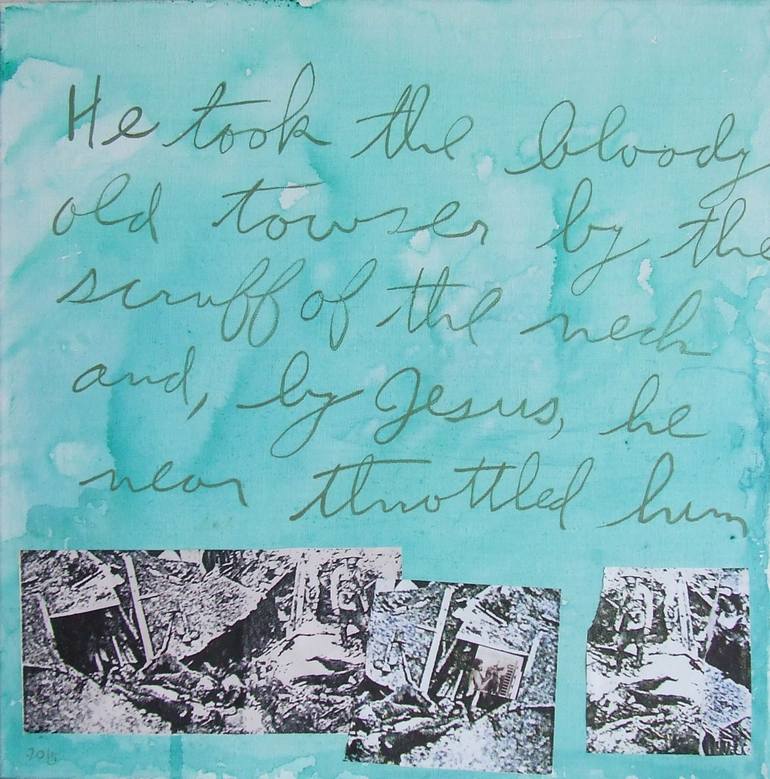 He took the bloody
old towser by the
scruff of the neck
and, by Jesus, he
near throttled him